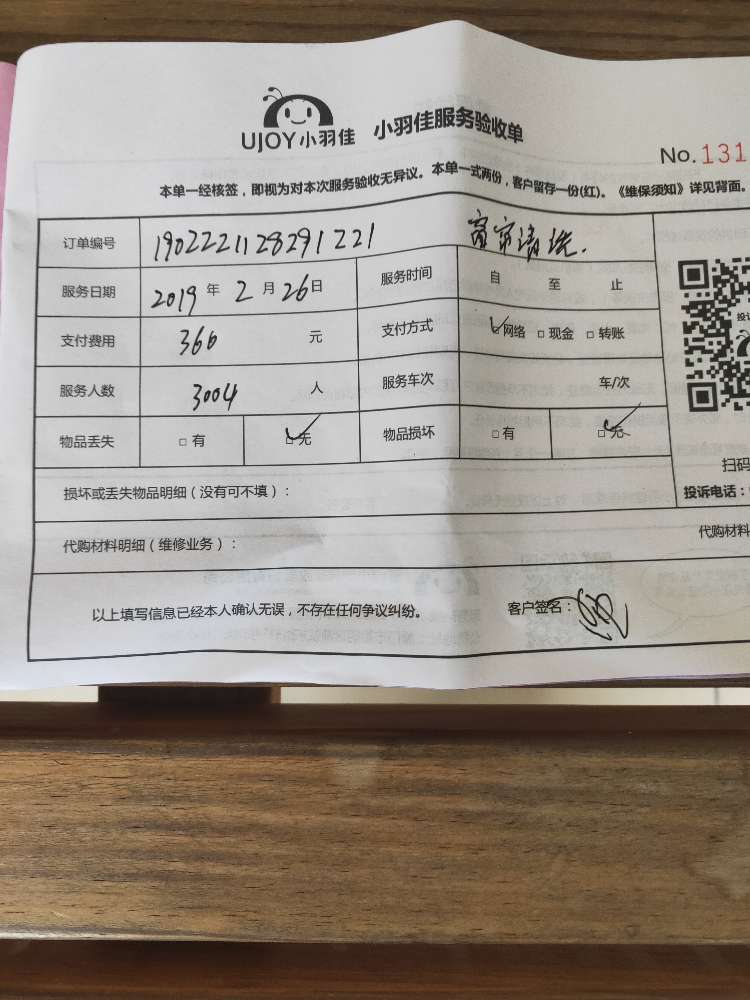 UJOY小羽佳 小羽佳服务验收单
No. 131
本单一经核签，即视为对本次服务验收无异议。本单一式两份，客户留存一份(红)。《维保须知》详见背面。
订单编号 1902221128291221
服务日期 2019 年 2 月 26 日 服务时间 自 至 止
支付费用 366 元 支付方式 网络 现金 转账
服务人数 3004 人 服务车次 车/次
物品丢失 有 无 物品损坏 有 无
扫码
损坏或丢失物品明细（没有可不填）： 投诉电话：
代购材料明细（维修业务）： 代购材料
以上填写信息已经本人确认无误，不存在任何争议纠纷。 客户签名：